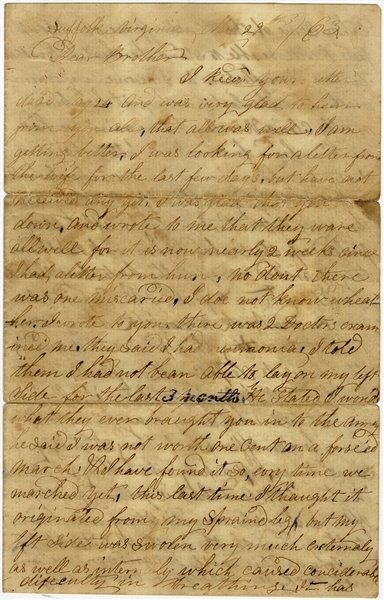 Suffolk Virginia 29th /63
Dear Brother
I yours
date and was very glad to hear
from you all, that all was well, I am
getting better, I was looking for a letter from
for the last few days, but have not
received any yet, I was glad that you
down, and wrote to me that they ware
all well for it is now nearly 2 weeks since
I had a letter from him, no dout there
was one miscaried, I doe not know wheat
her I wrote to you there was 2 Doctors exam
ined me, they said I had I told
them I had not bean able to lay on my left
Side for the last 3 months. He Stated I wonder
what they ever braught you in to the army
he said I was not worth one cent on a forsed
march, I have found it so, every time we
marched yet, this last time I thaught it
originated from my Spraind leg, but my
left side was Swolen very much externaly
as well as internaly which caused conciderable
difeculty in breathing. It has